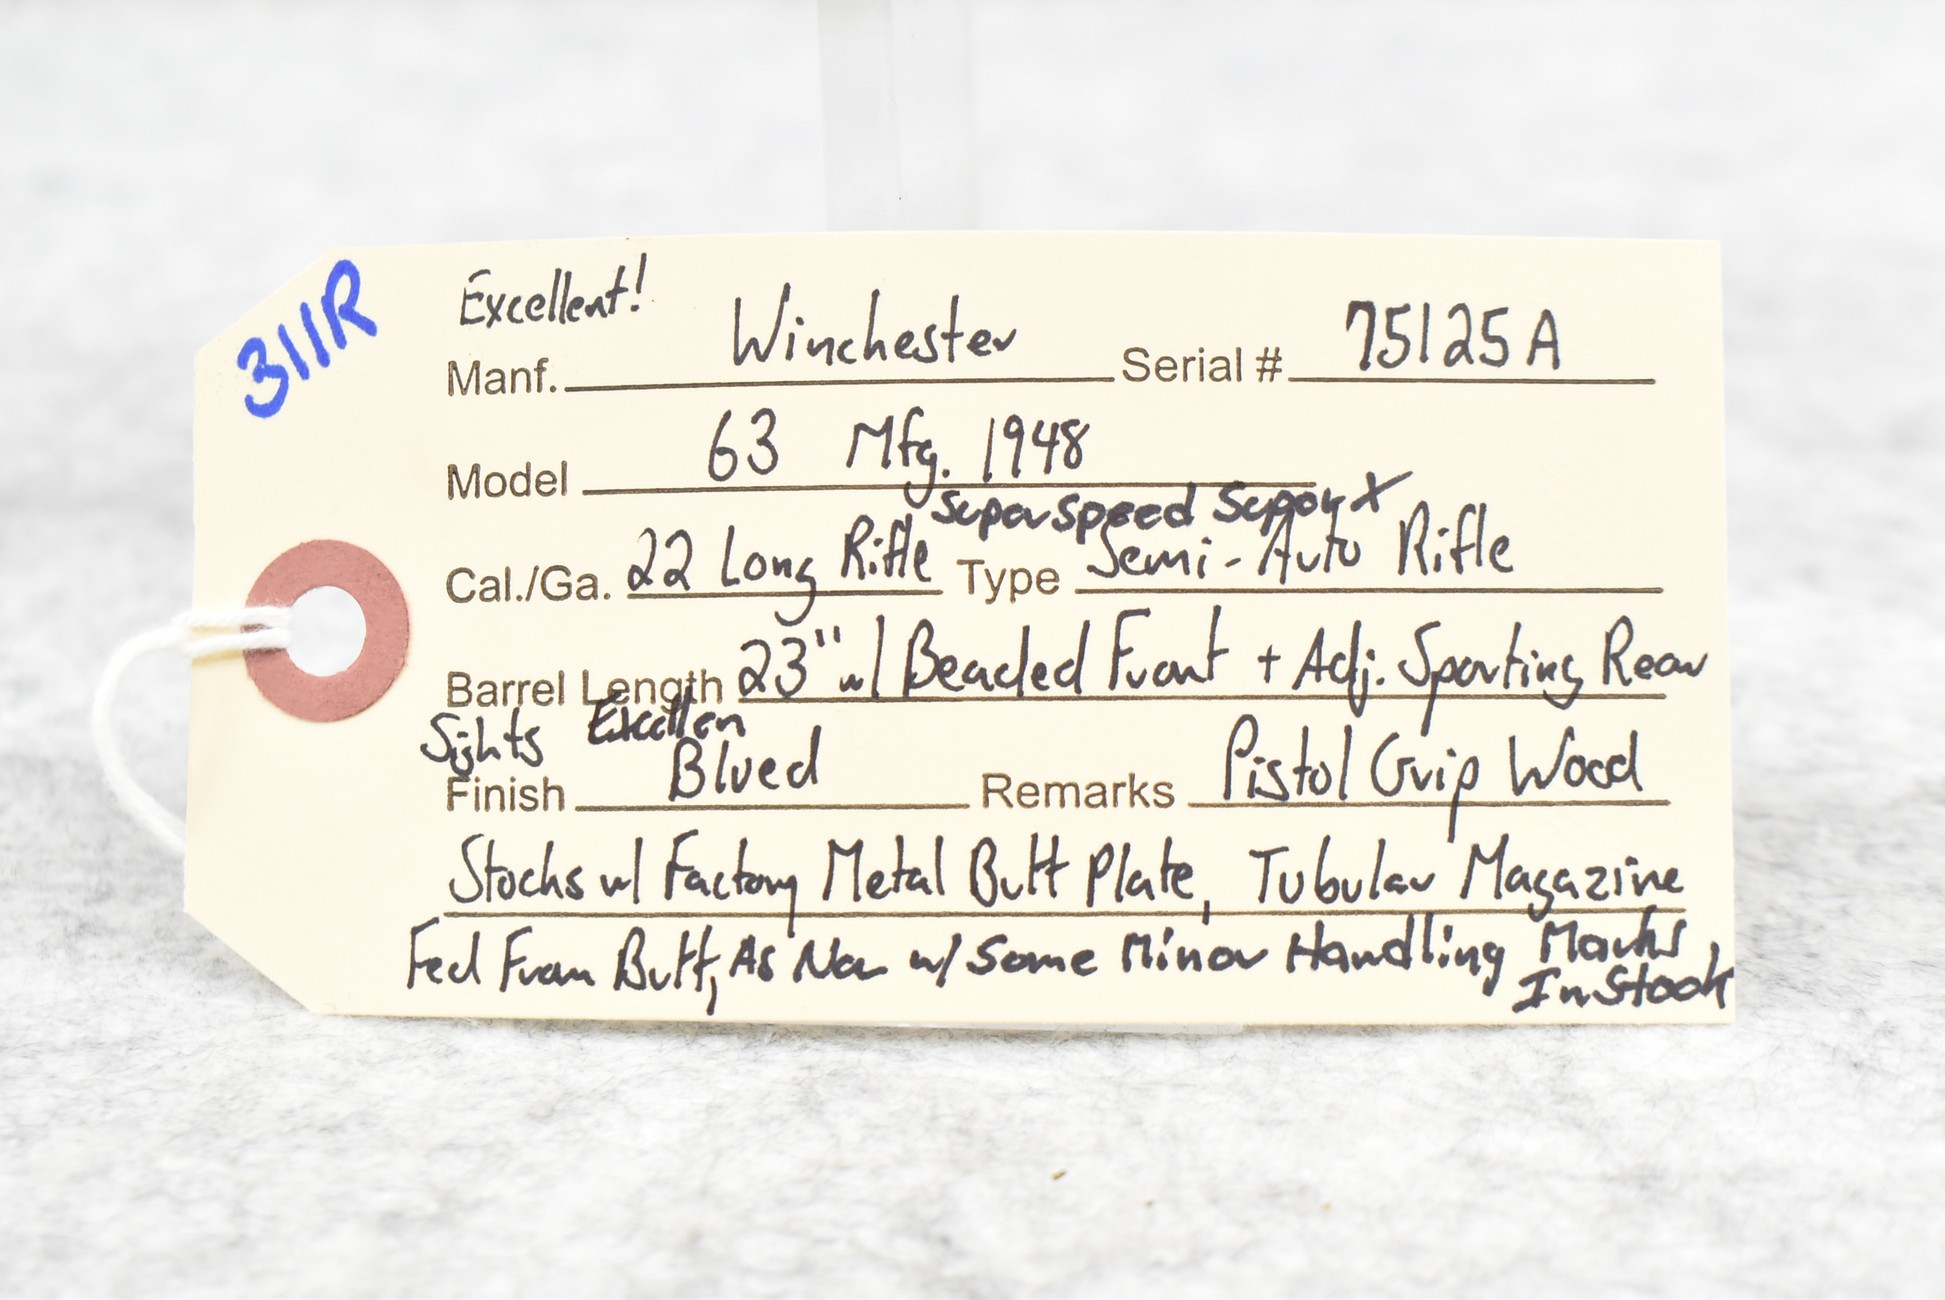 311R
Excellent!
Manf. Winchester Serial # 75125A
Model 63 Mfg. 1948
Superspeed Super X
Cal./Ga. 22 Long Rifle Type Semi-Auto Rifle
Barrel Length 23" w/ Beaded Front + Adj. Sporting Rear
Sights Excellen
Finish Blued Remarks Pistol Grip Wood
Stocks w/ Factory Metal Butt Plate, Tubular Magazine
Fed From Butt, As New w/ Some Minor Handling Marks,
In Stock